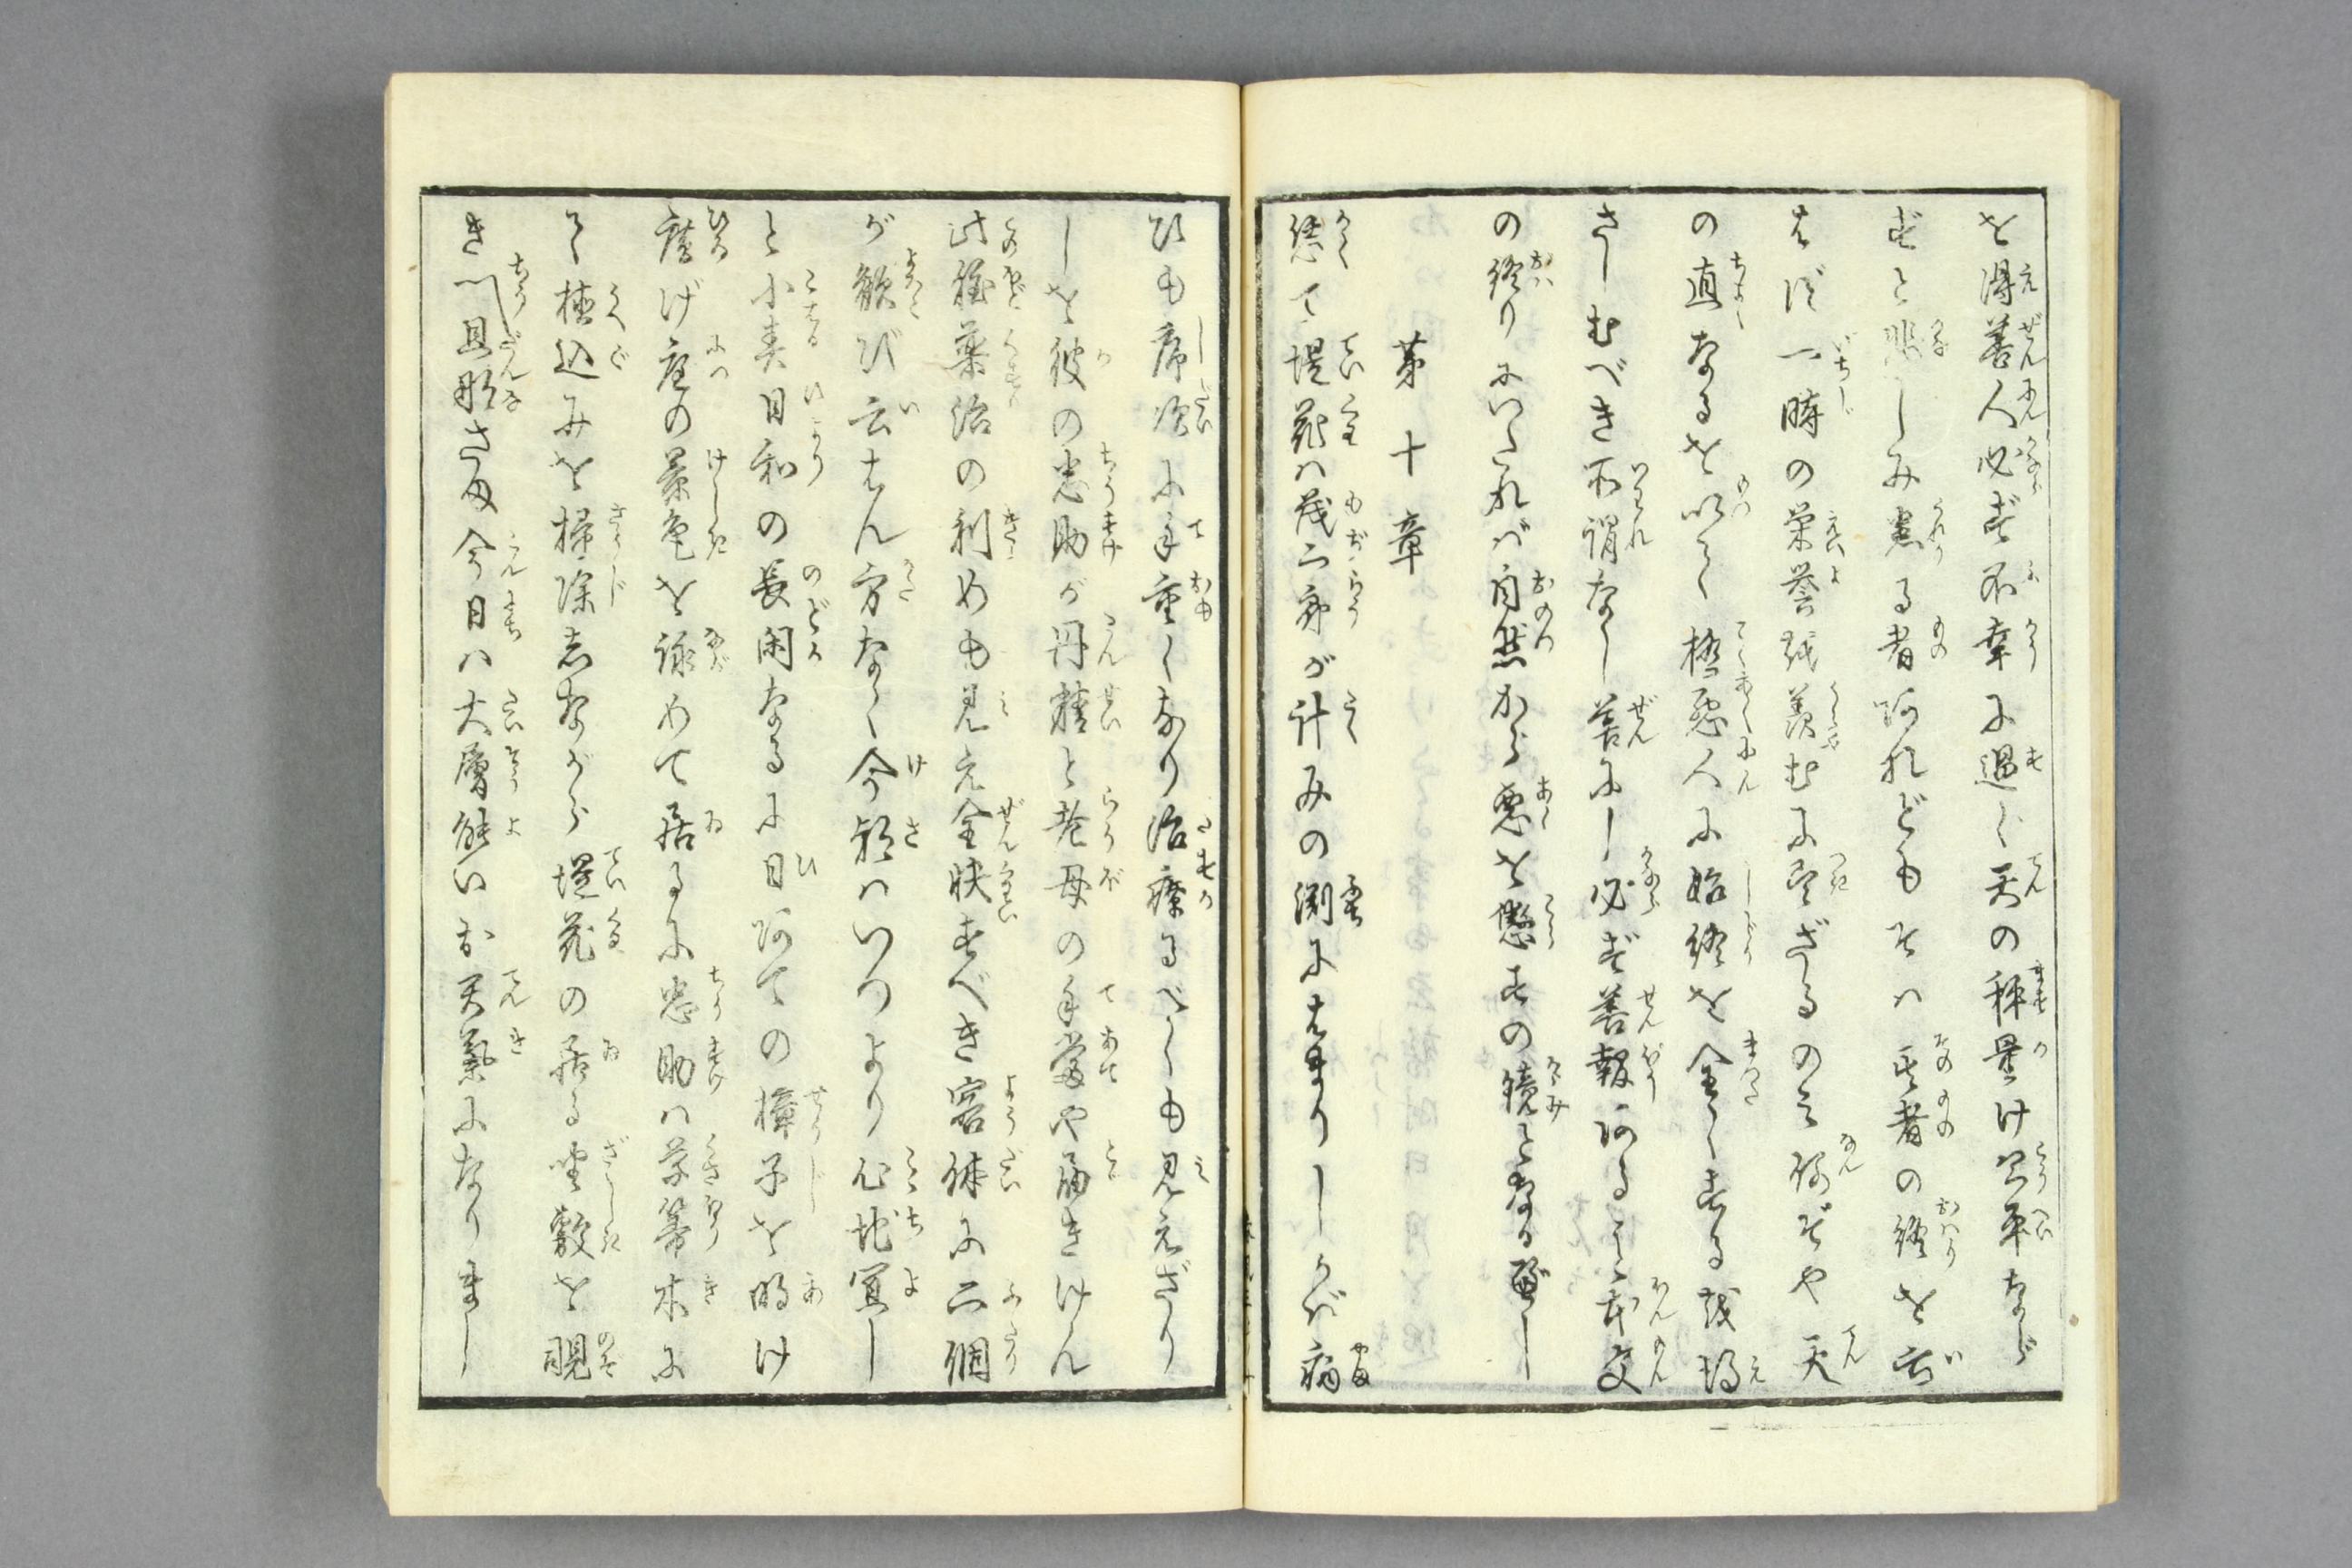 を得善人必ず不幸に過ぐ天の秤量は公平ならず
ずと悲しみ患る者あれどもそは其者の終を云
はず一時の栄誉を羨むに足ざるのみ何ぞや天
の直なるを以て極悪人に始終を全くする越得
さしむべき所謂なし善にし必ず善報あること本文
の終りにいたれバ自然から悪を懲すの鏡となる可し
第十章
偖て堤花ハ茂二郎が計みの淵にはまりしかバ病
ひも席次に手重くなり治療るべくも見えざり
しを彼の忠助が丹精と老母の手当や届きけん
此程薬治の利めも見え全快すべき容体に二個
が歓び云はん方なく今朝ハいつより心地宜し
と小春日和の長閑なるに日あての障子を明け
広げ庭の景色を詠めて居るに忠助ハ草箒木に
て植込みを掃除しながら堤花の居る坐敷を覗
き「旦那さま今日ハ大層能いお天気になりまし